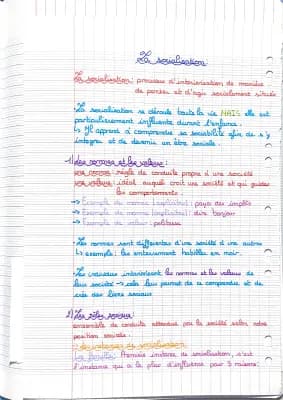 La socialisation
La socialisation : processus d'intériorisation de manière
de penser et d'agir socialement situés
La socialisation se déroule toute la vie MAIS elle est
particulièrement influente durant l'enfance :
↳ Il apprend à comprendre sa sociabilité afin de s'y
intégrer et de devenir un être sociale.
1) Les normes et les valeurs :
Les normes : règle de conduite propre d'une société
Les valeurs : idéal auquel croit une société et qui guides
les comportements.
→ Exemple de norme (explicites) : payer des impôts
→ Exemple de norme (implicites) : dire bonjour
→ Exemple de valeur : politesse
• Les normes sont différentes d'une société d'une autres
↳ exemple : les enterrement habillés en noir.
• Les individus intériorisent les normes et les valeurs de
leur société → cela leur permet de se comprendre et de
créé des liens sociaux
2) Les rôles sociaux :
ensemble de conduite attendus par la société selon notre
position sociale.
instances de socialisation
La famille : Première instance de socialisation, c'est
l'instance qui a le plus d'influence pour 3 raisons :